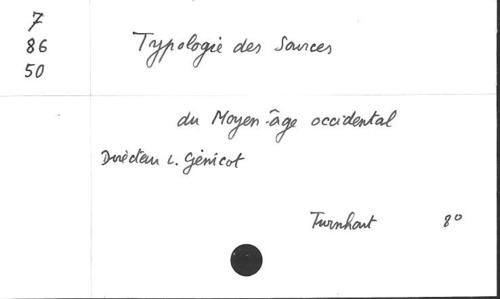 7
86
50
Typologie des Sources
du Moyen-âge occidental
Directeur L. Génicot
Turnhout 8°